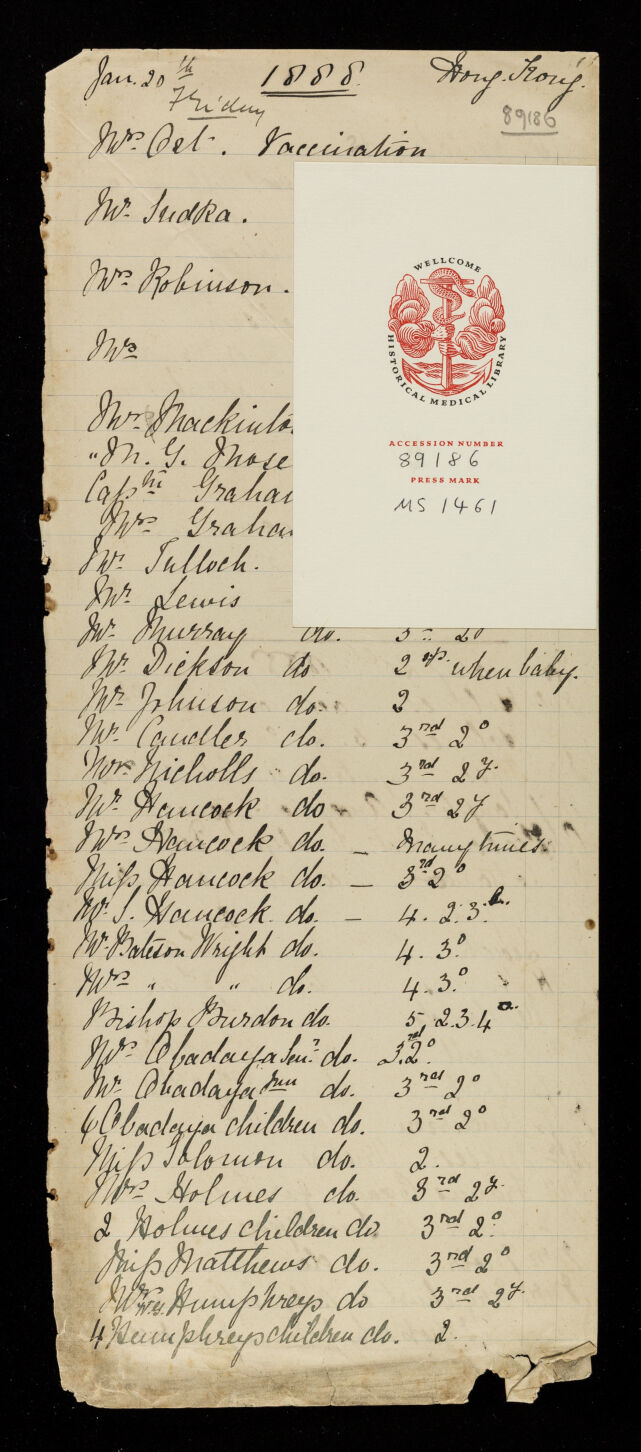 Jan. 20th 1888. Hong Kong.
Friday
89186
Mrs Ost. Vaccination
Mr Sudka.
Mrs Robinson.
Mrs
Mr Mackinto
" M. G. Mose
Captn Graha
Mrs Graha
Mr Tulloch.
Mr Lewis
Mr Murray do. 3 20
Mr Dickson do 2 when baby.
Mr Johnson do. 2
Mr Candler do. 3rd 2o
Mr Nicholls do. 3rd 2y.
Mr Hancock do - 3rd 2y
Mrs Hancock do. - Many times.
Miss Hancock do. - 3rd 2o
Mr S. Hancock do. - 4. 2.3.
Mr Bateson Wright do. 4. 3o.
Mrs " " do. 4. 3o.
Bishop Burdon do. 5 2.3.4
Mrs Obadaya Senr. do. 3rd 2o.
Mr Obadaya Jun do. 3rd 2o
6 Obadaya children do. 3rd 2o
Miss Solomon do. 2.
Mrs Holmes do. 3rd 2y.
2 Holmes children do 3rd 2o.
Miss Matthews do. 3rd 2o
Humphreys do 3rd 2y.
4 Humphreys children do. 2.
WELLCOME
HISTORICAL MEDICAL LIBRARY
ACCESSION NUMBER
89186
PRESS MARK
MS 1461